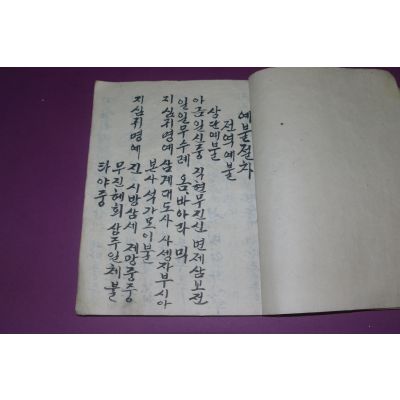 예불절차
전역예불
상단예불
아금일신중 직현무진신 변제삼보전
일일무수례 옴바아라 믹
지심귀명예 삼계대도사 사셍자부시아
본사 석가모이불
지심귀명예 진시방삼세 제망중중
무진혜회 상주일체불
타야중